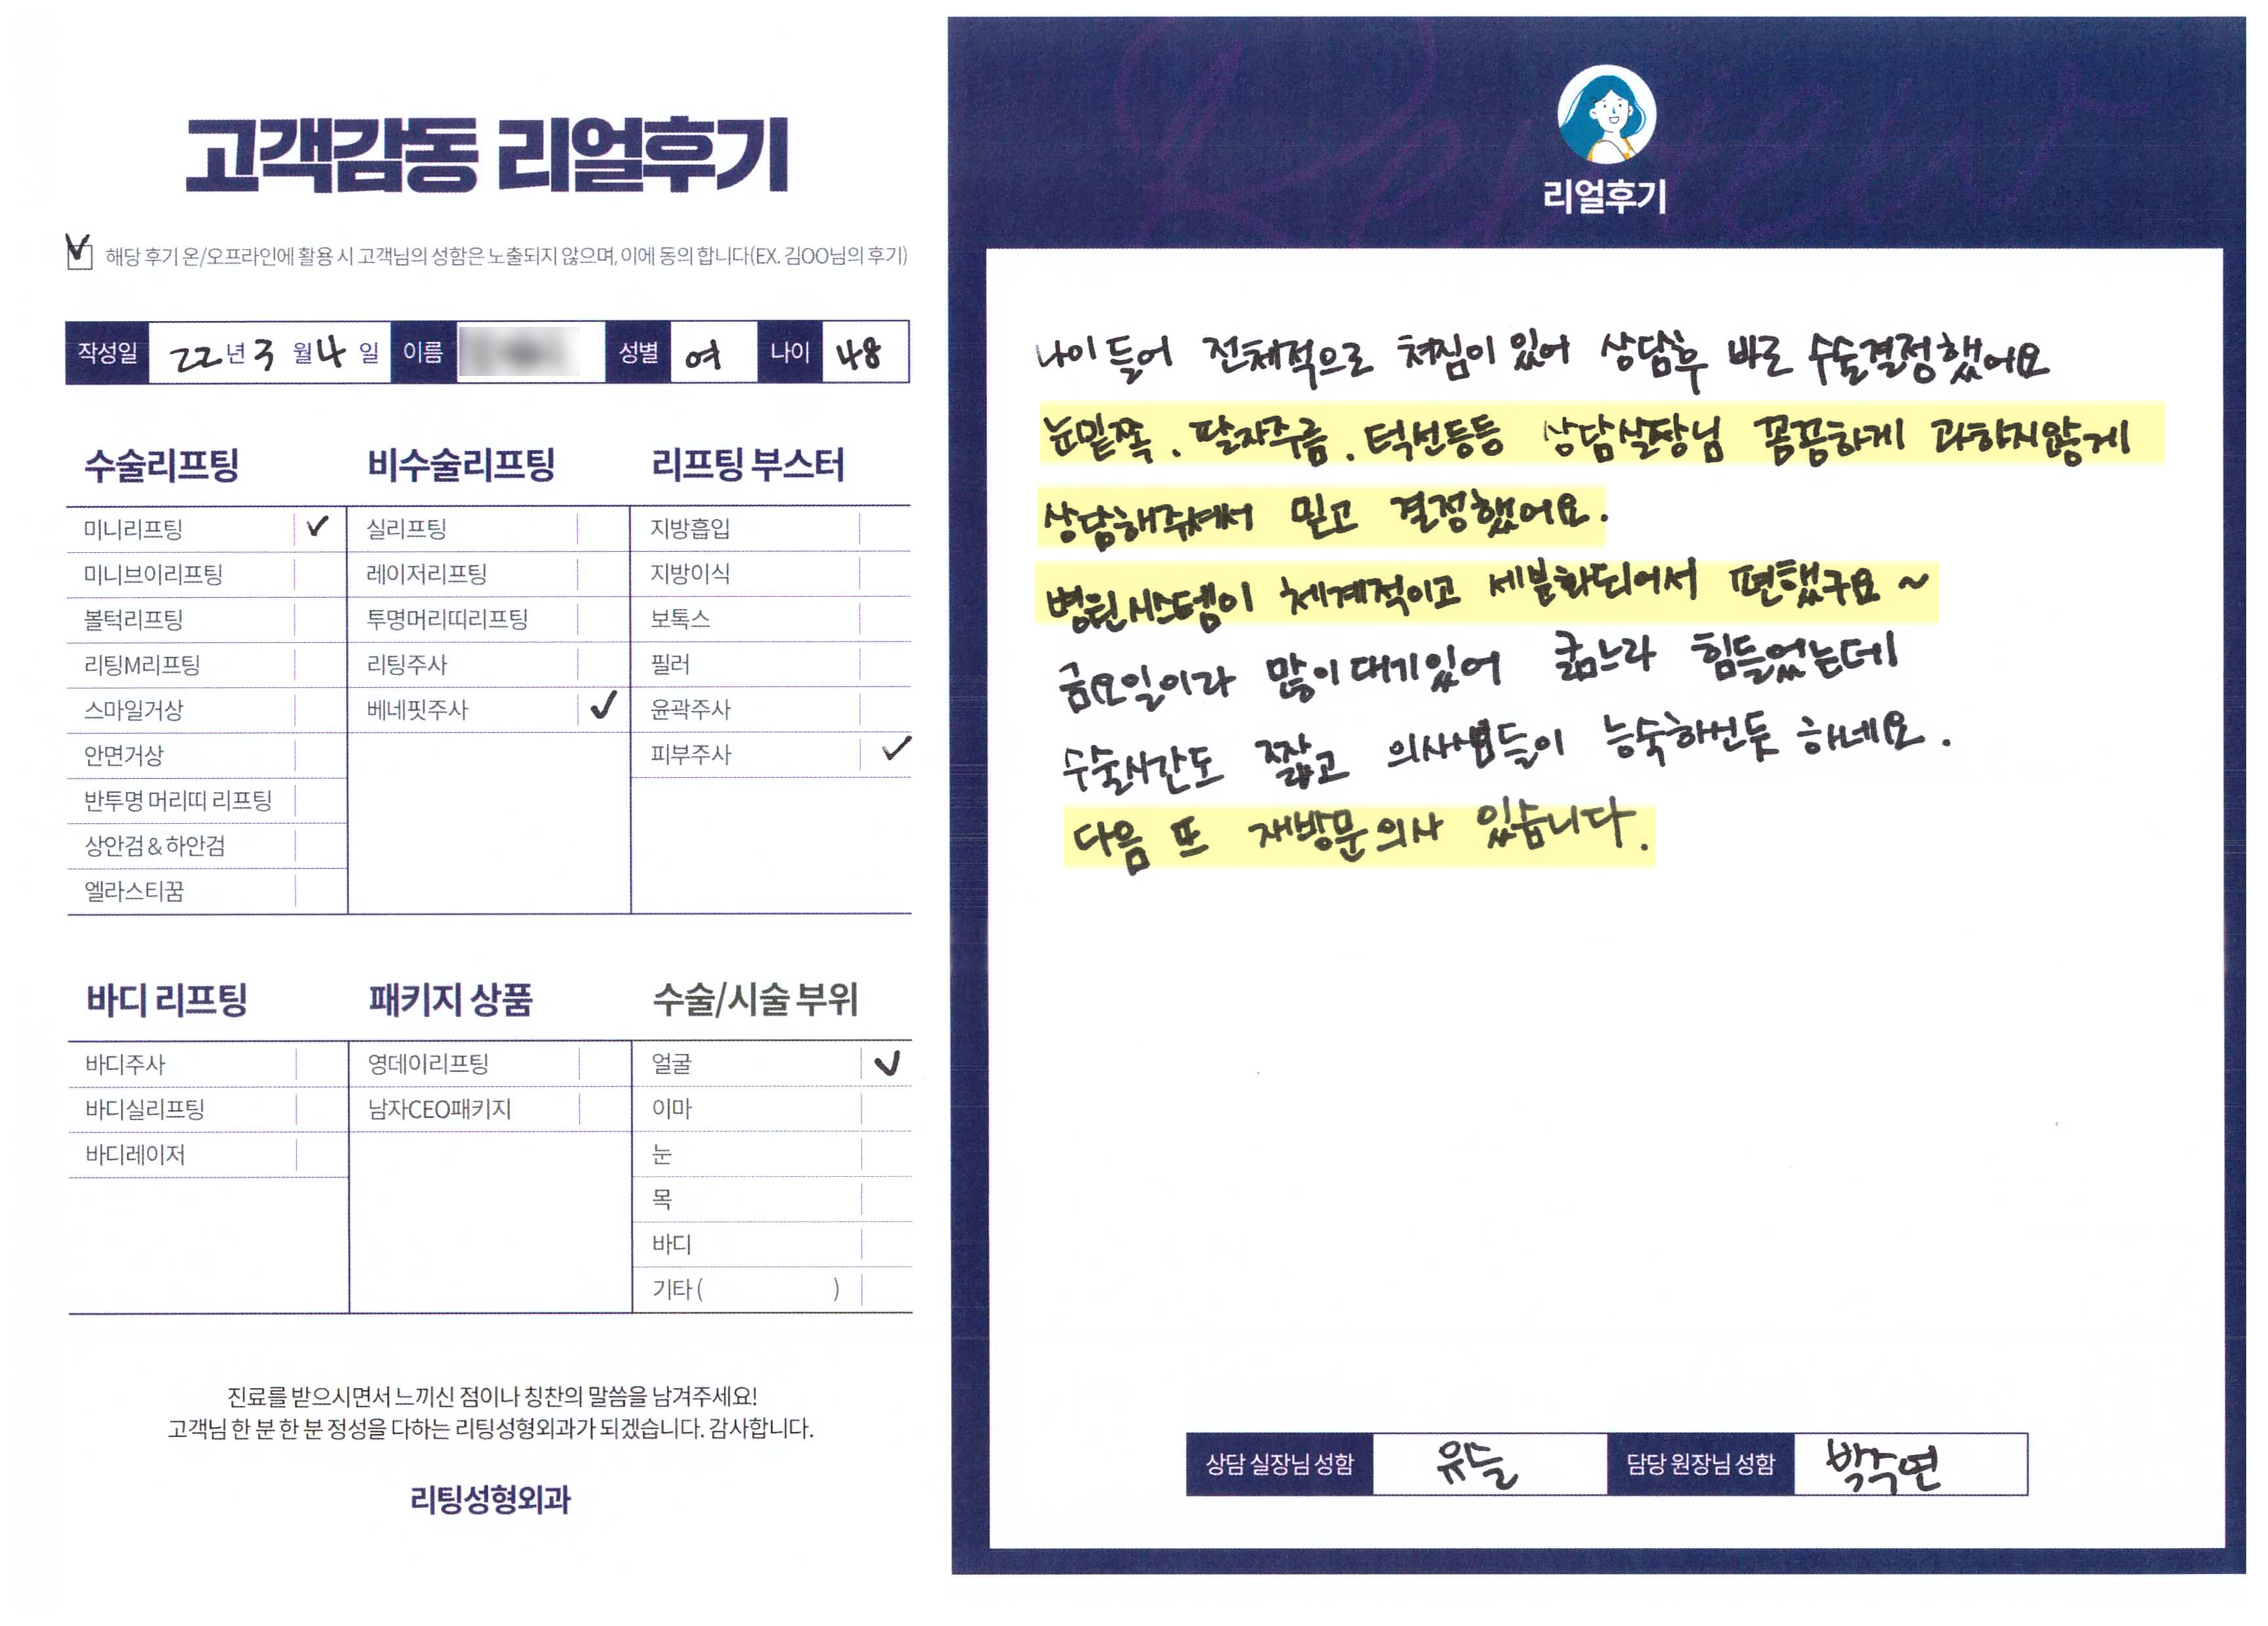 고객감동 리얼후기
해당 후기 온/오프라인에 활용 시 고객님의 성함은 노출되지 않으며, 이에 동의 합니다(EX. 김OO님의 후기)
작성일 22년 3월 4일 이름 성별 여 나이 48
수술리프팅 비수술리프팅 리프팅 부스터
미니리프팅 실리프팅 지방흡입
미니브이리프팅 레이저리프팅 지방이식
볼턱리프팅 투명머리띠리프팅 보톡스
리팅M리프팅 리팅주사 필러
스마일거상 베네핏주사 윤곽주사
안면거상 피부주사
반투명 머리띠 리프팅
상안검 & 하안검
엘라스티꿈
바디 리프팅 패키지 상품 수술/시술 부위
바디주사 영데이리프팅 얼굴
바디실리프팅 남자CEO패키지 이마
바디레이저 눈
목
바디
기타 ( )
진료를 받으시면서 느끼신 점이나 칭찬의 말씀을 남겨주세요!
고객님 한 분 한 분 정성을 다하는 리팅성형외과가 되겠습니다. 감사합니다.
리팅성형외과
Review
리얼후기
나이 들어 전체적으로 쳐짐이 있어 상담후 바로 수술결정했어요
눈밑쪽. 팔자주름. 턱선등등 상담실장님 꼼꼼하게 과하지않게
상담해줘서 믿고 결정했어요.
병원시스템이 체계적이고 세분화되어서 편했구요~
금요일이라 많이 대기있어 굶느라 힘들었는데
수술시간도 짧고 의사샘들이 능숙하신듯 하네요.
다음 또 재방문의사 있습니다.
상담 실장님 성함 유늘 담당 원장님 성함 박수연